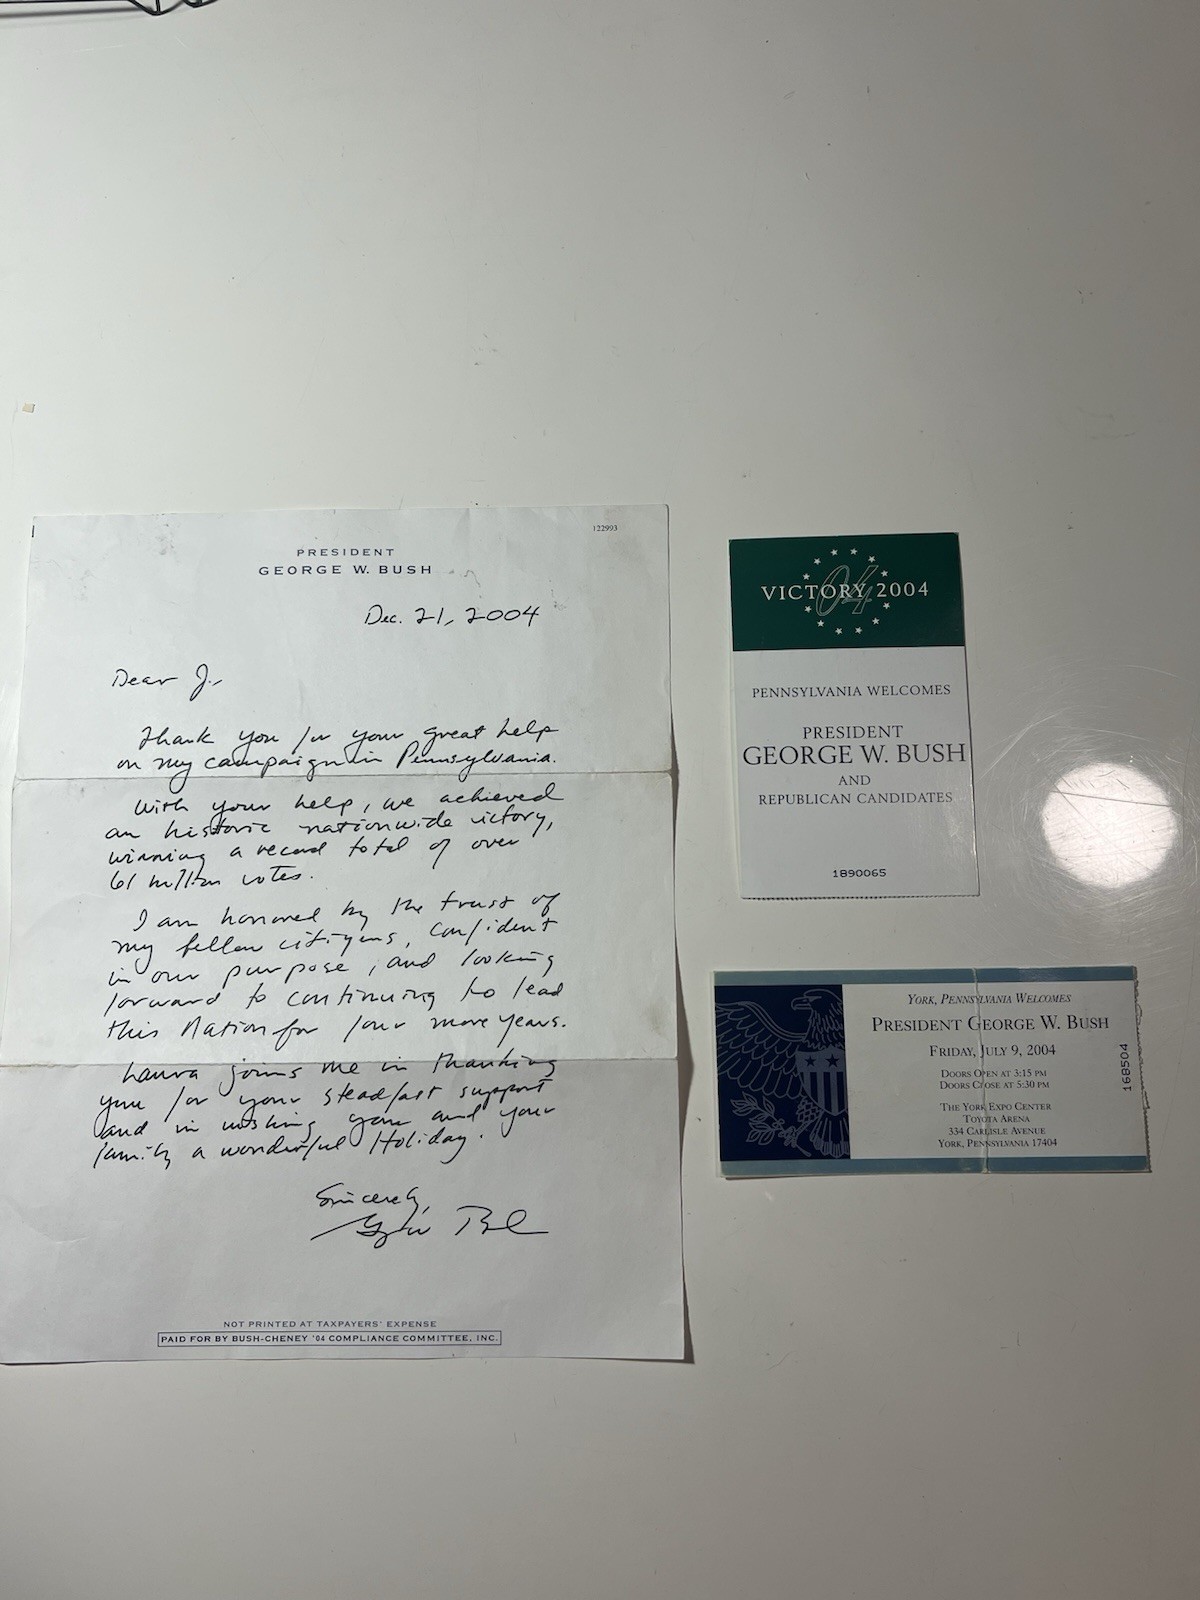 122993
PRESIDENT
GEORGE W. BUSH
Dec. 21, 2004
Dear J.,
Thank you for your great help
on my campaign in Pennsylvania.
With your help, we achieved
an historic nationwide victory,
winning a record total of over
61 million votes.
I am honored by the trust of
my fellow citizens, confident
in our purpose, and looking
forward to continuing to lead
this Nation for four more years.
Laura joins me in thanking
you for your steadfast support
and in wishing you and your
family a wonderful Holiday.
Sincerely,
George Bush
NOT PRINTED AT TAXPAYERS' EXPENSE
PAID FOR BY BUSH-CHENEY '04 COMPLIANCE COMMITTEE, INC.
04
VICTORY 2004
PENNSYLVANIA WELCOMES
PRESIDENT
GEORGE W. BUSH
AND
REPUBLICAN CANDIDATES
1890065
YORK, PENNSYLVANIA WELCOMES
PRESIDENT GEORGE W. BUSH
FRIDAY, JULY 9, 2004
DOORS OPEN AT 3:15 PM
DOORS CLOSE AT 5:30 PM
THE YORK EXPO CENTER
TOYOTA ARENA
334 CARLISLE AVENUE
YORK, PENNSYLVANIA 17404
168504